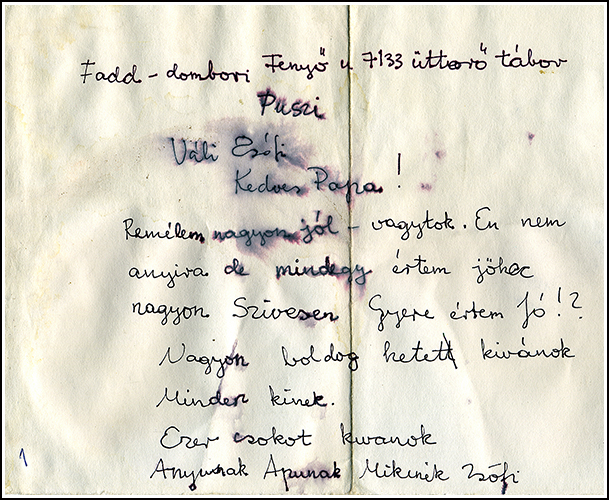 Fadd - dombori Fenyő u 7133 úttörő tábor
Puszi
Váli Zsófi
Kedves Papa!
Remélem nagyon jól - vagytok. Én nem
anyira de mindegy értem jöhec
nagyon Szivesen Gyere értem Jó!?
Nagyon boldog hetett kivánok
Minden kinek.
Ezer csokot kivanok
Anyunak Apunak Mikinek Zsófi
1